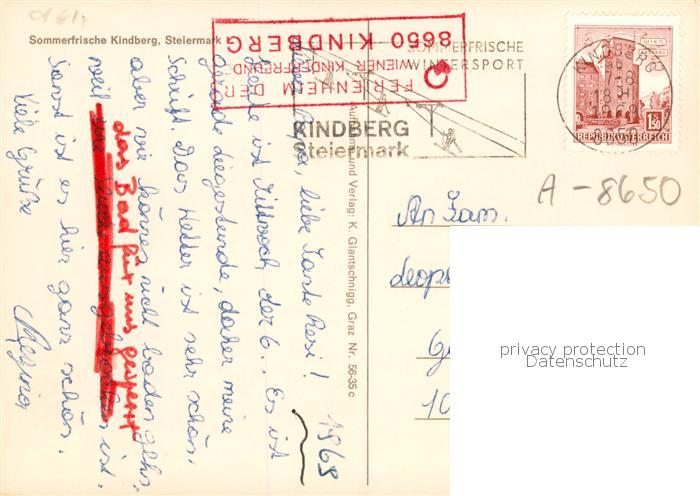 Sommerfrische Kindberg, Steiermark
FERIENHEIM DER
WIENER KINDERFREUNDE
8650 KINDBERG
SOMMERFRISCHE
WINTERSPORT
KINDBERG
Steiermark
KINDBERG
8650
WIEN
1.50
REPUBLIK ÖSTERREICH
A-8650
liebe Tante Resi!
Heute ist Mittwoch, der 6.. Es ist
gerade Liegestunde, daher meine
Schrift. Das Wetter ist sehr schön,
aber wir können nicht baden gehn,
weil
das Bad für uns gesperrt
ist.
Sonst ist es hier ganz schön.
Viele Grüße
1969
Aufnahme und Verlag: K. Glantschnigg, Graz Nr. 56-35 c
An Fam.
Leop
10
privacy protection
Datenschutz